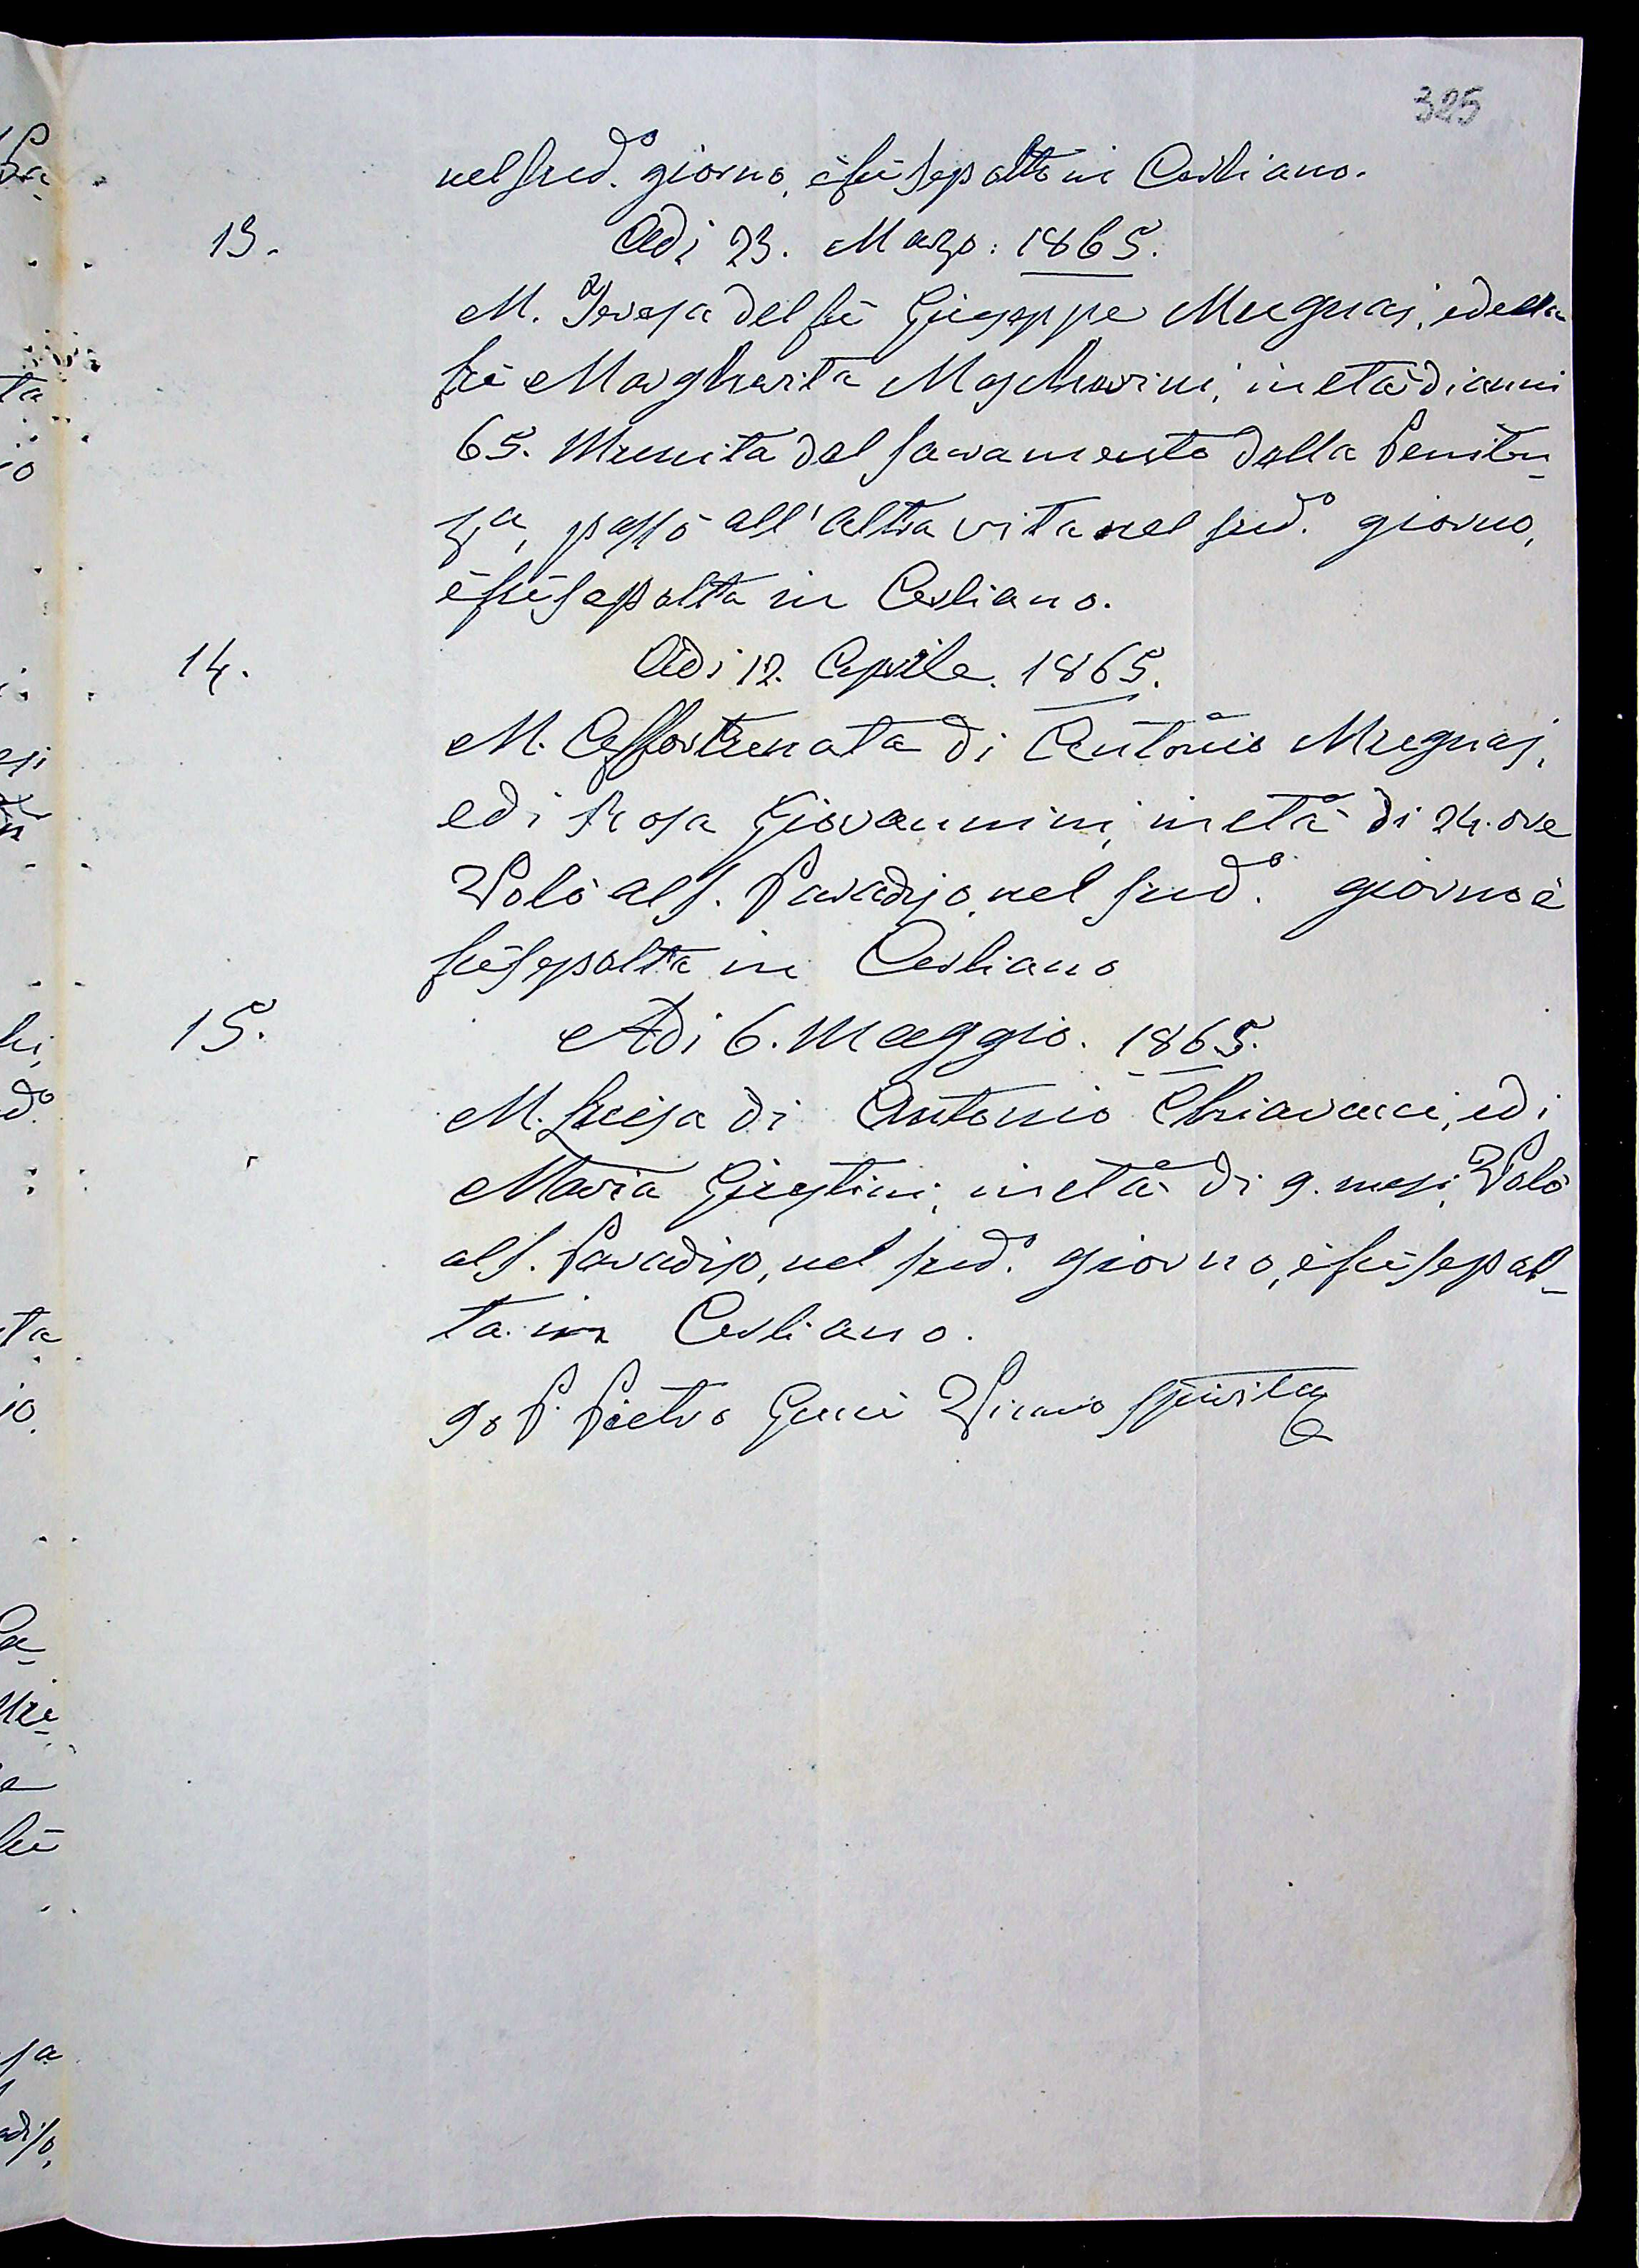 325
nel sud.º giorno, e fù sepolto in Cerliano.
13. Adi 23. Marzo: 1865.
M. Teresa del fù Giuseppe Mugnaj, e della
fù Margherita Moscherini, in età di anni
65. Munita del sacramento della Peniten-
za, passò all'altra vita nel sud.º giorno,
e fù sepolta in Cerliano.
14. Adi 12. Aprile. 1865.
M. Affortunata di Antonio Mugnaj,
e di Rosa Giovannini, in età di 24. ore
Volò al S. Paradiso, nel sud.º giorno e
fù sepolta in Cerliano
15. Adi 6. Maggio. 1865.
M. Luisa di Antonio Chiavacci, e di
Maria Giustini, in età di 9. mesi, Volò
al S. Paradiso, nel sud.º giorno, e fù sepol-
ta in Cerliano.
Io P. Pietro Vicario Spirite